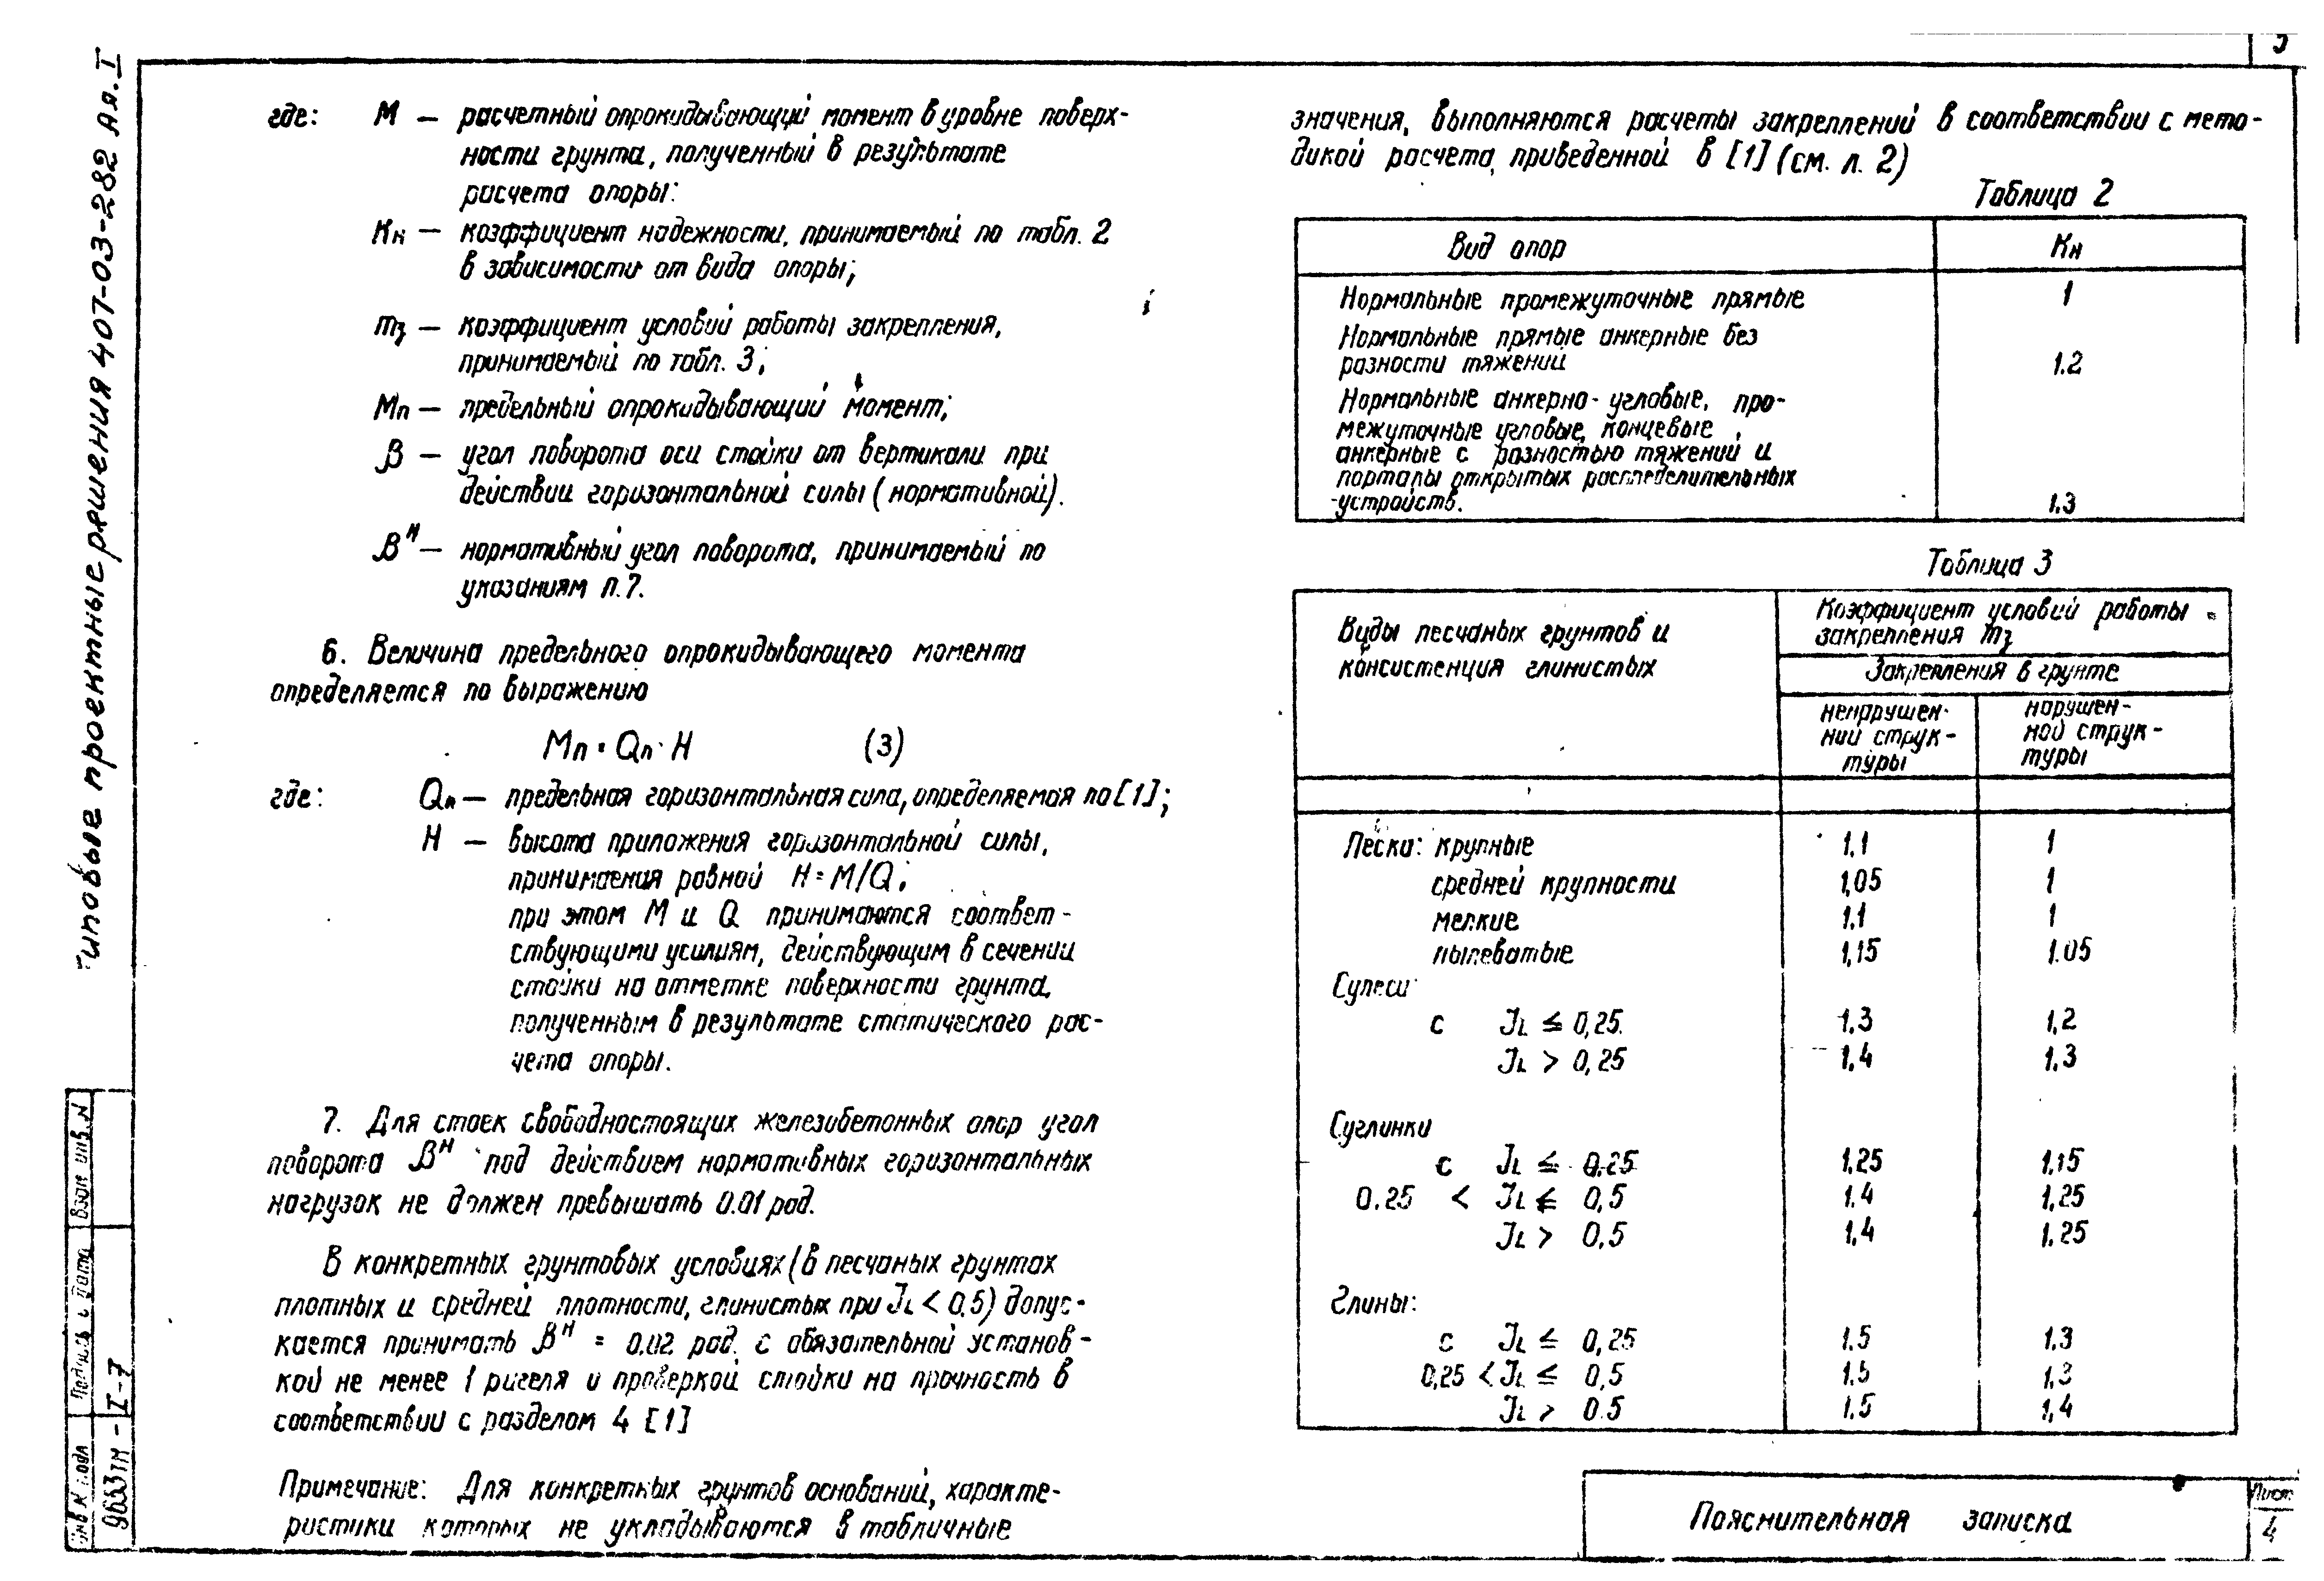 5
Типовые проектные решения 407-03-282 Ал. I
где: М — расчетный опрокидывающий момент в уровне поверх-
ности грунта, полученный в результате
расчета опоры:
Кн — коэффициент надежности, принимаемый по табл. 2
в зависимости от вида опоры;
mз — коэффициент условий работы закрепления,
принимаемый по табл. 3;
Мп — предельный опрокидывающий момент;
β — угол поворота оси стойки от вертикали при
действии горизонтальной силы (нормативной).
βᴴ — нормативный угол поворота, принимаемый по
указаниям п.7.
6. Величина предельного опрокидывающего момента
определяется по выражению
Мп = Qп · Н (3)
где: Qп — предельная горизонтальная сила, определяемая по [1];
Н — высота приложения горизонтальной силы,
принимаемая равной Н = М/Q;
при этом М и Q принимаются соответ-
ствующими усилиям, действующим в сечении
стойки на отметке поверхности грунта,
полученным в результате статического рас-
чета опоры.
7. Для стоек свободностоящих железобетонных опор угол
поворота βᴴ под действием нормативных горизонтальных
нагрузок не должен превышать 0.01 рад.
В конкретных грунтовых условиях (в песчаных грунтах
плотных и средней плотности, глинистых при JL < 0,5) допус-
кается принимать βᴴ = 0.02 рад. с обязательной установ-
кой не менее 1 ригеля и проверкой стойки на прочность в
соответствии с разделом 4 [1]
Примечание: Для конкретных грунтов оснований, характе-
ристики которых не укладываются в табличные
значения, выполняются расчеты закреплений в соответствии с мето-
дикой расчета, приведенной в [1] (см. л. 2)
Таблица 2
Вид опор Кн
Нормальные промежуточные прямые 1
Нормальные прямые анкерные без
разности тяжений 1.2
Нормальные анкерно-угловые, про-
межуточные угловые, концевые,
анкерные с разностью тяжений и
порталы открытых распределительных
устройств. 1.3
Таблица 3
Виды песчаных грунтов и
консистенция глинистых
Коэффициент условий работы
закрепления mз
Закрепления в грунте
ненарушен-
ний струк-
туры
нарушен-
ной струк-
туры
Пески: крупные 1.1 1
средней крупности 1,05 1
мелкие 1.1 1
пылеватые 1,15 1.05
Супеси:
с JL ≤ 0,25 1.3 1,2
JL > 0,25 1,4 1,3
Суглинки
с JL ≤ 0.25 1.25 1,15
0.25 < JL ≤ 0,5 1.4 1,25
JL > 0,5 1,4 1.25
Глины:
с JL ≤ 0,25 1.5 1.3
0,25 < JL ≤ 0,5 1.5 1,3
JL > 0.5 1.5 1,4
Пояснительная записка
Лист
4
Взам инв. N
Подпись и дата
Инв N подл
9633тм-I-7